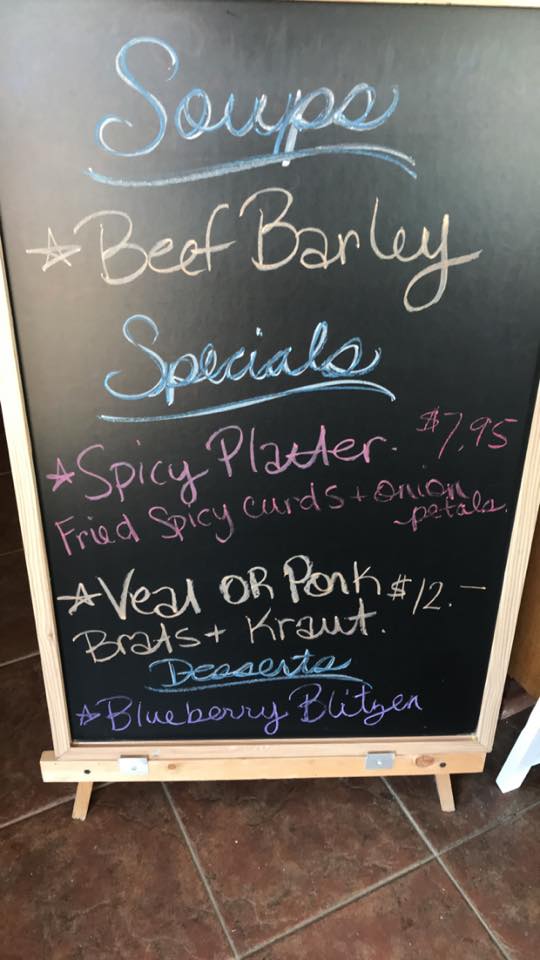 Soups
☆ Beef Barley
Specials
☆ Spicy Platter. $7.95
Fried Spicy curds + onion
petals.
☆ Veal OR Pork $12.—
Brats + Kraut.
Desserts
☆ Blueberry Blitzen